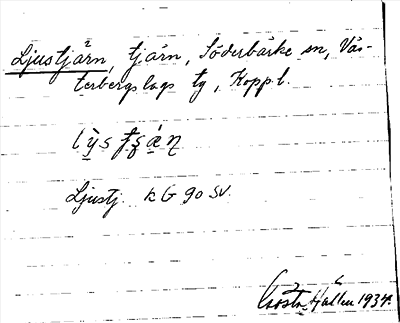 Ljustjärn, tjärn, Söderbärke sn, Väs-
terbergslags tg, Kopp.l.
Ljustj. kG 90 SV.
Gösta Hallén 1934.